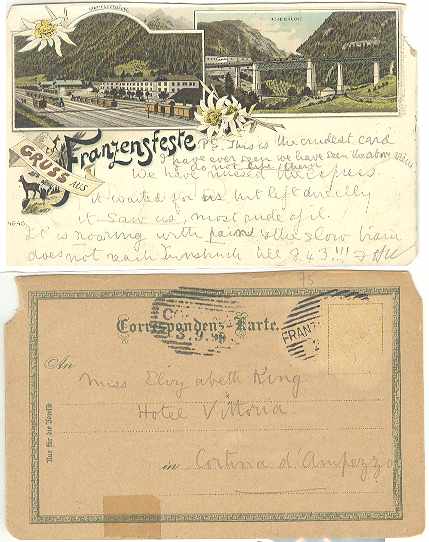 Franzensfeste
GRUSS AUS
PS. This is the crudest card
I have ever seen we have been
do not like them
We have missed the express
it waited for us but left directly
it saw us, most rude of it.
It is roaring with pain & the slow train
does not reach Innsbruck till 7.43 !!!
Correspondenz-Karte.
FRANZ
An
Miss Elizabeth King
Hotel Vittoria
in Cortina d'Ampezzo
Nur für die Adresse